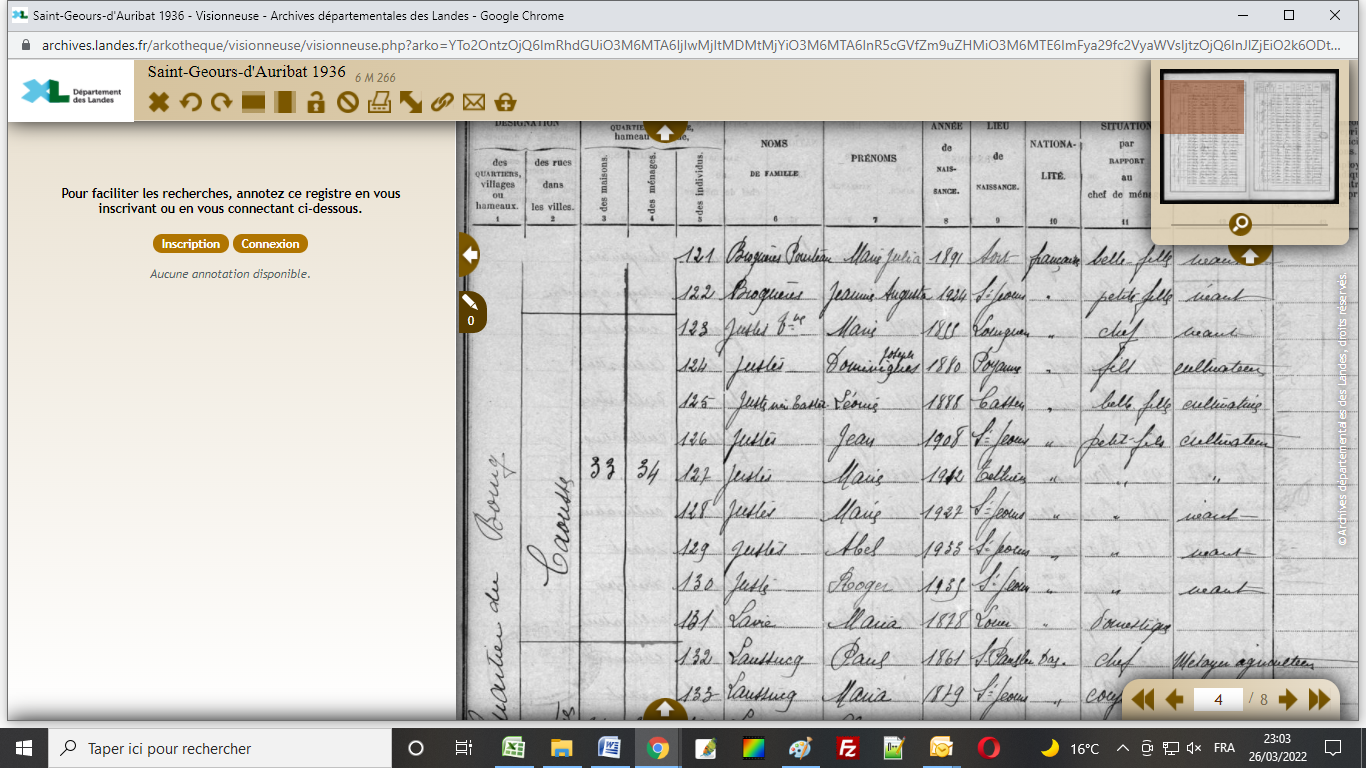 Saint-Geours-d'Auribat 1936 - Visionneuse - Archives départementales des Landes - Google Chrome
archives.landes.fr/arkotheque/visionneuse/visionneuse.php?arko=
Saint-Geours-d'Auribat 1936 6 M 266
XL Département des Landes
Pour faciliter les recherches, annotez ce registre en vous
inscrivant ou en vous connectant ci-dessous.
Inscription Connexion
Aucune annotation disponible.
0
DÉSIGNATION
des QUARTIERS, villages ou hameaux.
des rues dans les villes.
des maisons.
des ménages.
des individus.
NOMS DE FAMILLE
PRÉNOMS
ANNÉE de NAISSANCE.
LIEU de NAISSANCE.
NATIONALITÉ.
SITUATION par RAPPORT au
1 2 3 4 5 6 7 8 9 10 11
121 Broquères Marie Julia 1891 Sort française belle-fille néant
122 Broquères Jeanne Augusta 1924 St Geours " petite fille néant
123 Justes Vve Marie 1855 " chef néant
124 Justes Dominique Joseph 1880 Poyanne " fils cultivateur
125 Léonie 1888 Cassen " belle fille cultivatrice
126 Justes Jean 1908 St Geours " petit-fils cultivateur
33 34
127 Justes Marie 1912 " " "
128 Justes Marie 1927 St Geours " " néant
129 Justes Abel 1933 St Geours " " néant
130 Juste Roger 1935 St Geours " " néant
131 Lavie Maria 1878 " domestique
132 Laussucq Paul 1861 chef Métayer agriculteur
133 Laussucq Maria 1879 St Geours "
Quartier du Bourg
© Archives départementales des Landes, droits réservés.
4 / 8
Taper ici pour rechercher
16°C
FRA
23:03
26/03/2022